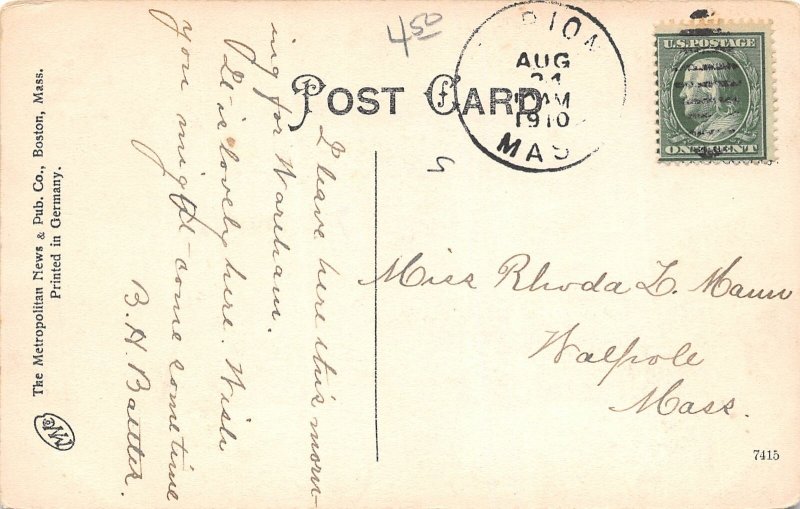 4 50
POST CARD
MARION
AUG
24
AM
1910
MAS
U.S. POSTAGE
ONE CENT
I leave here this morn-
ing for Wareham.
It is lovely here. Wish
you might come sometime
B. H.
Miss Rhoda L. Mann
Walpole
Mass.
The Metropolitan News & Pub. Co., Boston, Mass.
Printed in Germany.
7415